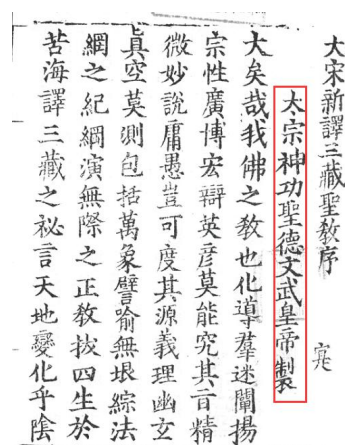 大宋新譯三藏聖教序
太宗神功聖德文武皇帝製
大矣哉我佛之教也化導羣迷闡揚
宗性廣博宏辯英彦莫能究其旨精
微妙說庸愚豈可度其源義理幽玄
真空莫測包括萬象譬喻無垠綜法
網之紀綱演無際之正教拔四生於
苦海譯三藏之祕言天地變化乎陰